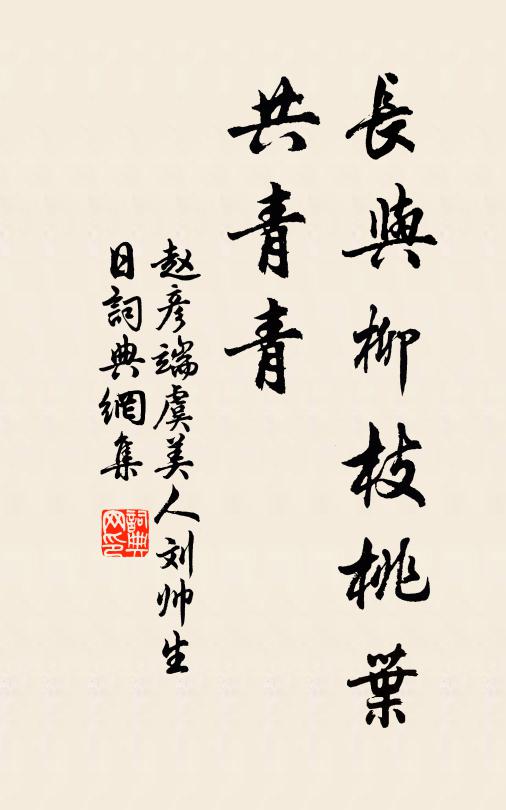 長與柳枝桃葉
共青青
赵彦端虞美人刘帅生
日詞典網集
詞典
网印